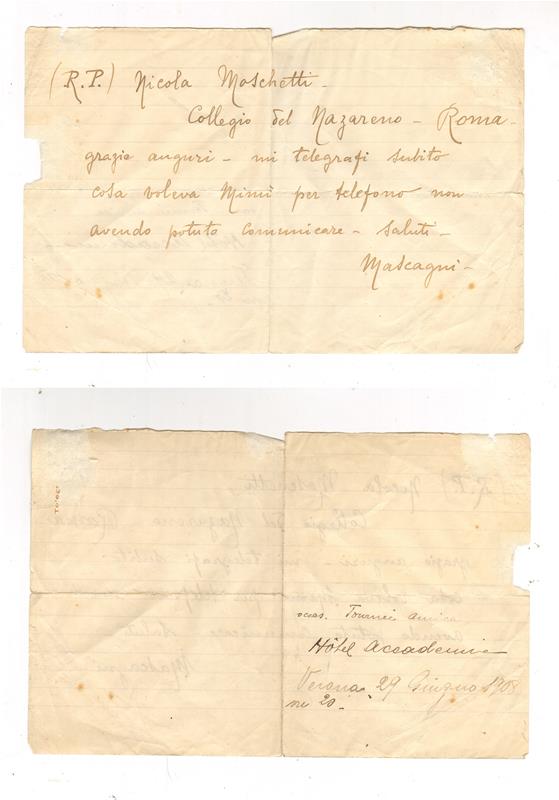 (R.P.) Nicola Moschetti -
Collegio del Nazareno - Roma -
grazie auguri - mi telegrafi subito
cosa voleva Mimì per telefono non
avendo potuto comunicare - saluti -
Mascagni -
Tournée
Hôtel Accademia
Verona 29 Giugno 1908
20 -